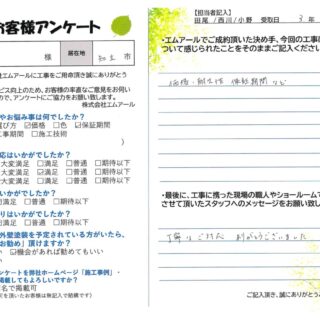 お客様アンケート
様 居在地 知立 市
社エムアールに工事をご用命頂き誠にありがとう
ービス向上のため、お客様の率直なご意見をお伺い
ので、アンケートにご協力をお願い致します。
株式会社エムアール
やお悩み事は何でしたか?
選び方 ☑価格 □色 ☑保証期間
工事期間 □施工技術
)
応はいかがでしたか?
大変満足 □満足 □普通 □期待以下
大変満足 □満足 □普通 □期待以下
いかがでしたか?
大変満足 □満足 □普通 □期待以下
りはいかがでしたか?
大変満足 □満足 □普通 □期待以下
外壁塗装を予定されている方がいたら、
お勧め」頂けますか?
い ☑機会があれば勧めてもいい
い
ンケートを弊社ホームページ「施工事例」・
掲載してもよろしいですか?
名で掲載可
可を頂いたお客様は無記入で結構です)
【担当者記入】
田尾 / 西川 / 小野 受取日 3 年
・エムアールでご成約頂いた決め手、今回の工事に
ついて感じられたことをそのままご記入ください。
価格・耐久性 保証期間 など
・最後に、工事に携った現場の職人やショールーム
させて頂いたスタッフへのメッセージをお願い致し
丁寧な ありがとうございました
ご記入頂き、誠にありがとう